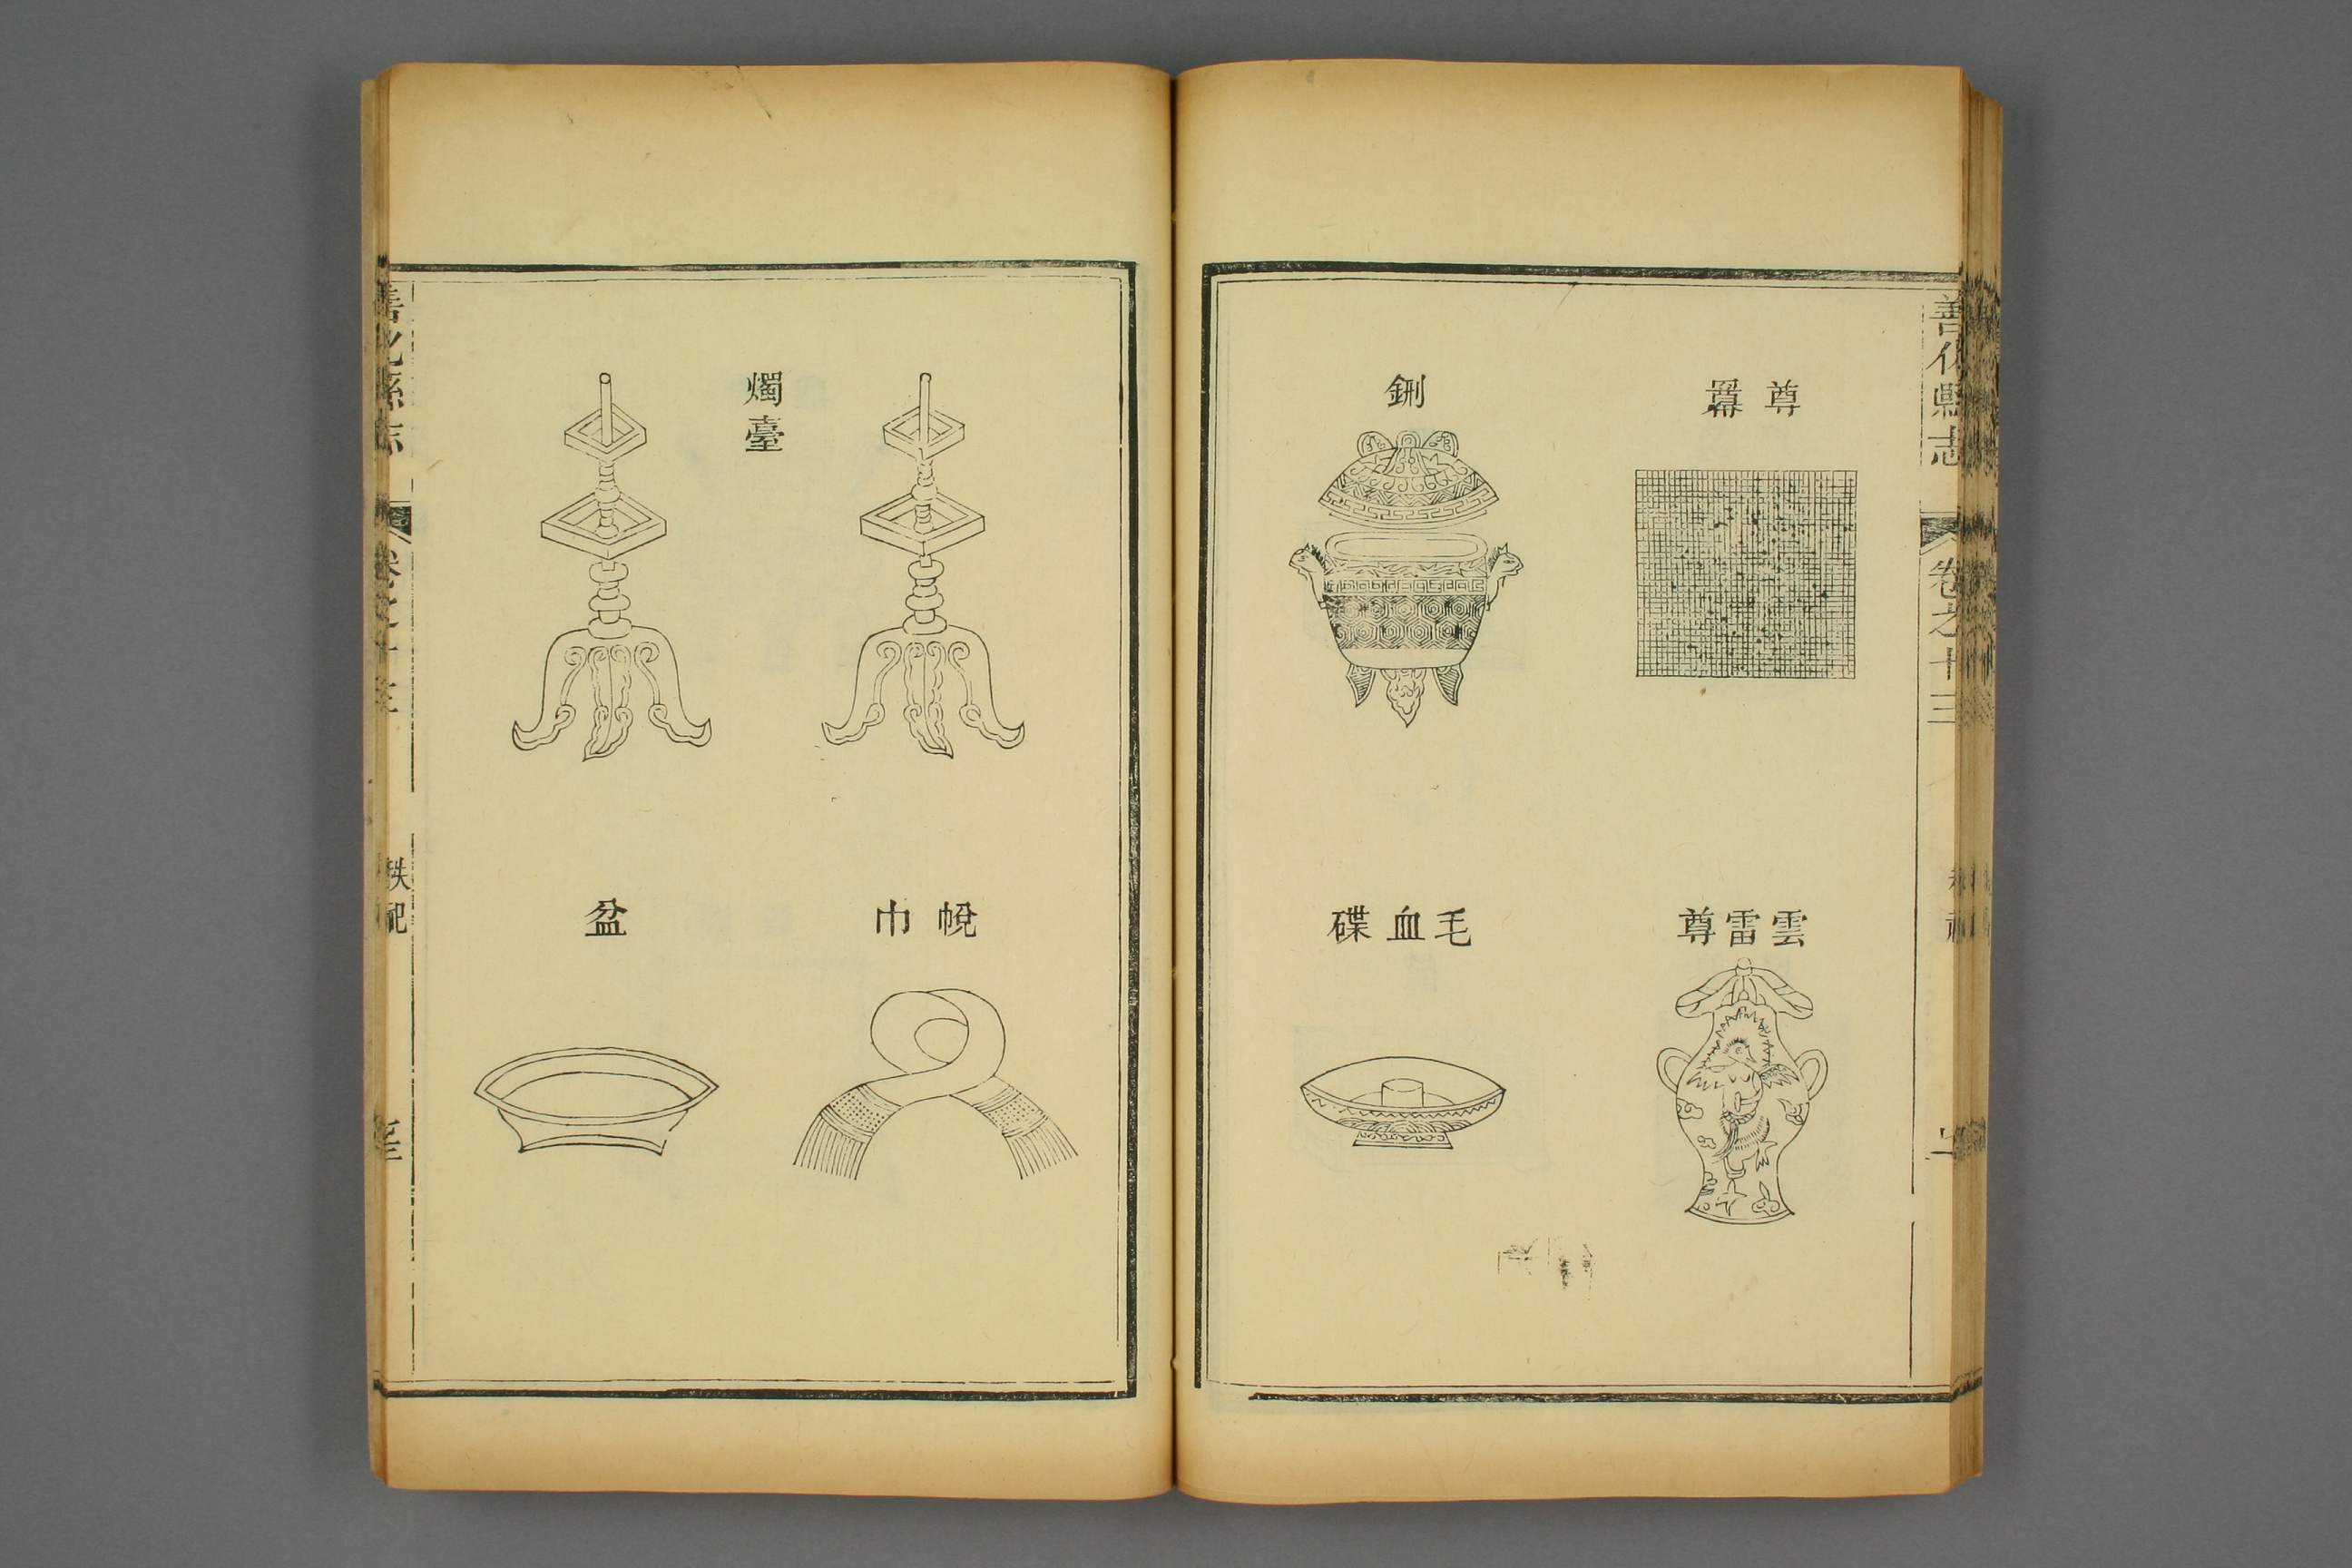 善化縣志
卷之十三
尊冪
雲雷尊
鉶
毛血碟
燭臺
帨巾
盆
善化縣志
卷之十三
秩祀